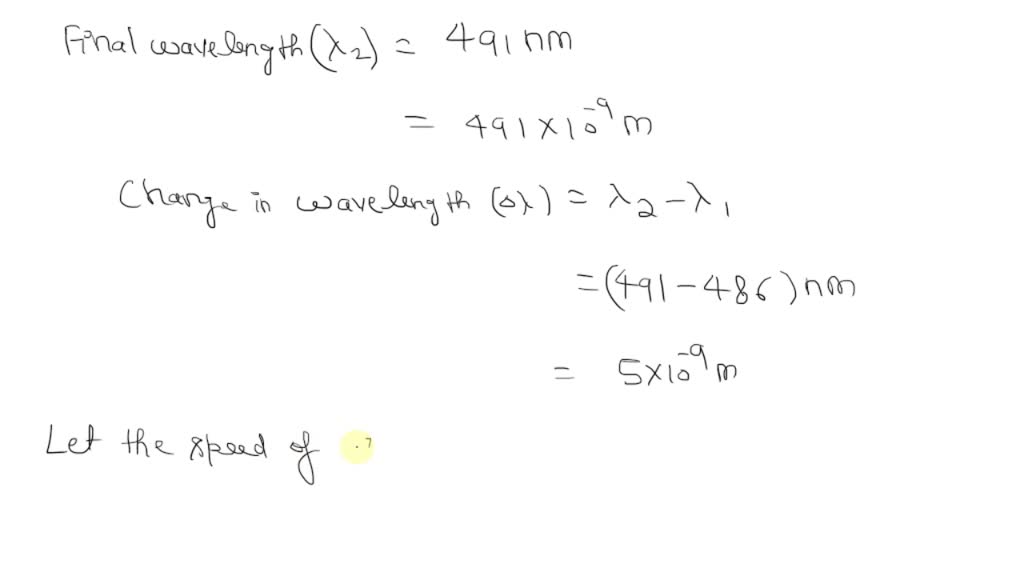 Final wavelength (λ₂) = 491 nm
= 491 × 10⁻⁹ m
Change in wavelength (Δλ) = λ₂ - λ₁
= (491 - 486) nm
= 5×10⁻⁹ m
Let the speed of